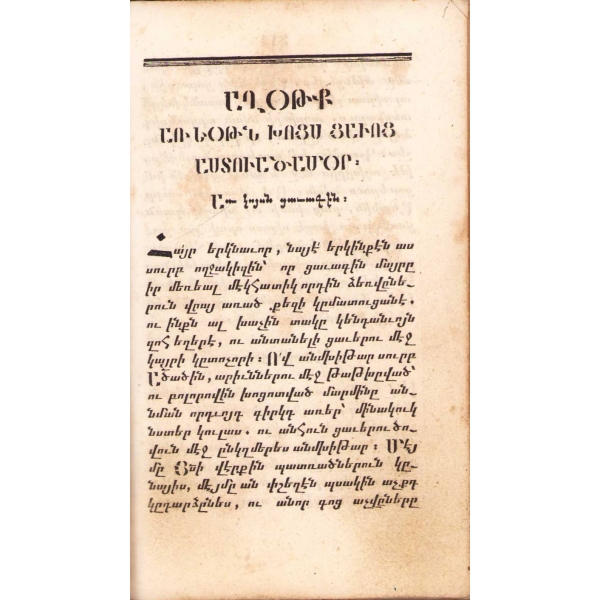 ԱՂՕԹՔ
ԱՌ ԵՕԹՆ ԽՈՑՍ ՑԱՒՈՑ
ԱՍՏՈՒԱԾԱՄՕՐ։
Առ կոյսն ցաւագին։
Հայր երկնաւոր, նայէ՛ երկինքէն աս
սուրբ ողջակիզին՝ որ ցաւագին մայրը
իր մեռեալ մէկհատիկ որդին ձեռվընե֊
րուն վրայ առած քեզի կըմատուցանէ.
ու ինքն ալ խաչին տակը կենդանւոյն
զոհ եղերէ, ու անտանելի ցաւերու մէջ
կայրի կըտոչորի։ Ո՛վ անմխիթար սուրբ
Ածածին, արիւններու մէջ թաթխըված՝
ու բոլորովին խոցոտված մարմինը ան֊
նման որդւոյդ գիրկդ առեր՝ մինակուկ
նստեր կուլաս. ու անհուն ցաւերու ծո֊
վուն մէջ ընկղմերես անմխիթար։ Մէյ
մը Յսի վէրքին պատռածներուն կը֊
նայիս, մէյմը ան փշեղէն պսակին աչքդ
կըդարձընես, ու անոր գոց աչվըները